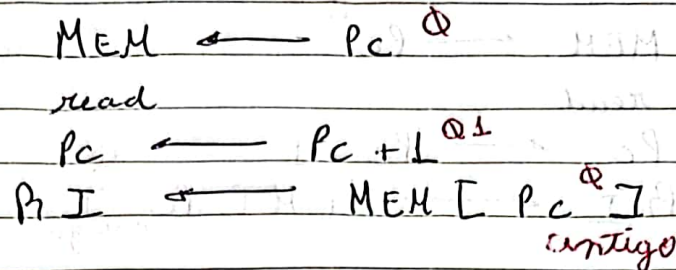 MEM ← Pc 0
read
Pc ← Pc + 1 01
RI ← MEM [ Pc 0 ]
antigo